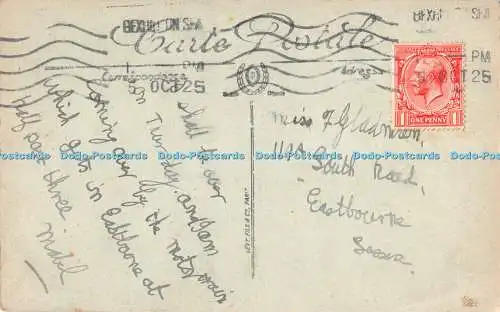 BEXHILL ON SEA
PM
OCT 25
BEXHILL ON SEA
PM
OCT 25
Carte Postale
Correspondance
Adresse
ONE PENNY
Shall be over
on Tuesday, and am
Coming over by the motor train
Which gets in Eastbourne at
Half past three
Mabel
Miss F Gladman,
South Road,
Eastbourne
Sussex.
LEVY FILS & Cie, PARIS
Dodo-Postcards Dodo-Postcards Dodo-Postcards Dodo-Postcards